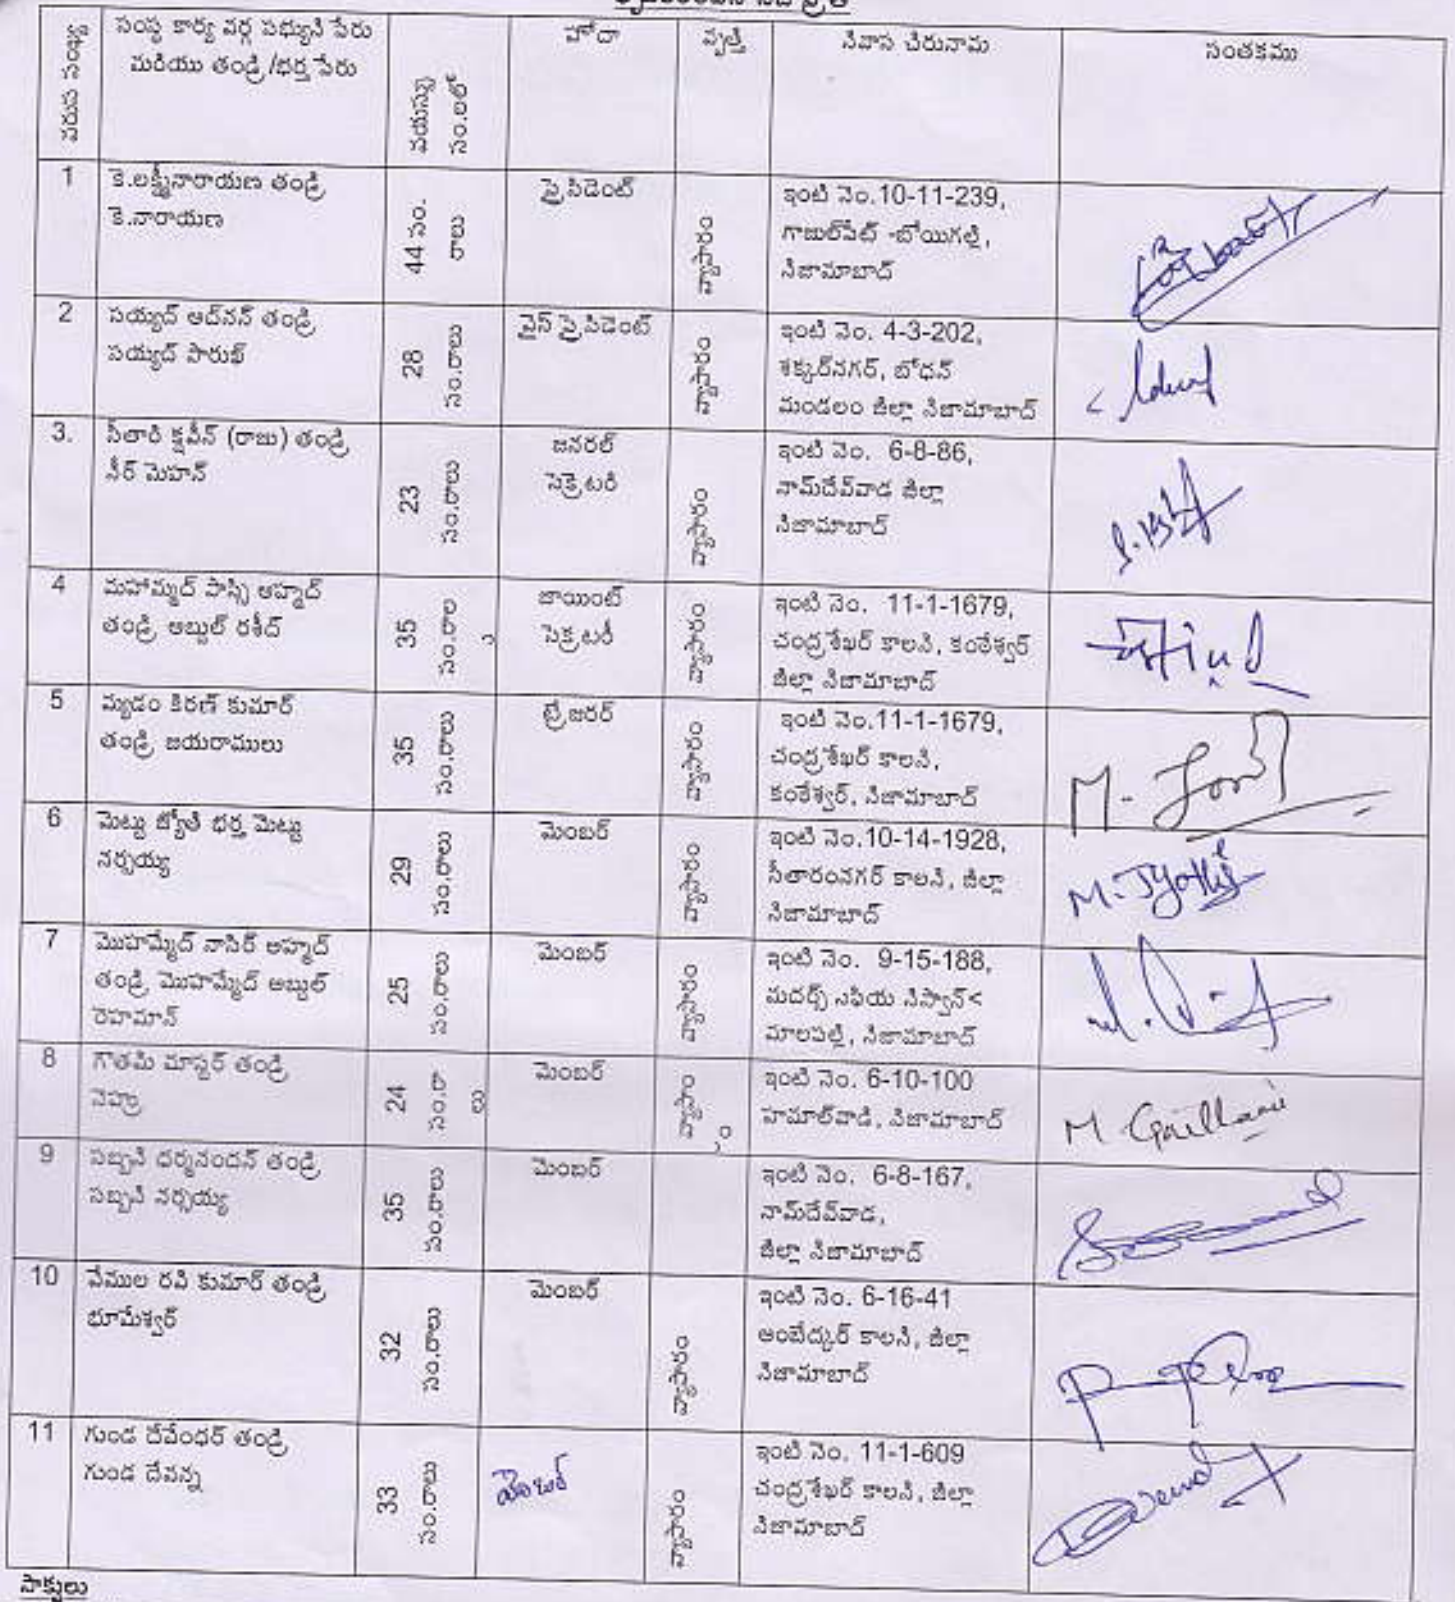 వరుస సంఖ్య
సంస్థ కార్య వర్గ సభ్యుని పేరు
మరియు తండ్రి/భర్త పేరు
వయస్సు
సం.లలో
హోదా
వృత్తి
నివాస చిరునామ
సంతకము
1
కె.లక్ష్మీనారాయణ తండ్రి
కె.నారాయణ
44 సం.
రాలు
ప్రెసిడెంట్
వ్యాపారం
ఇంటి నెం.10-11-239,
గాజుల్‌పేట్ -బోయిగల్లి,
నిజామాబాద్
2
సయ్యద్ అద్‌నన్ తండ్రి
సయ్యద్ పారుఖ్
28
సం.రాలు
వైస్ ప్రెసిడెంట్
వ్యాపారం
ఇంటి నెం. 4-3-202,
శక్కర్‌నగర్, బోధన్
మండలం జిల్లా నిజామాబాద్
3.
సీతారి క్షవీన్ (రాజు) తండ్రి
సీర్ మెహన్
23
సం.రాలు
జనరల్
సెక్రెటరీ
వ్యాపారం
ఇంటి నెం. 6-8-86,
నామ్‌దేవ్‌వాడ జిల్లా
నిజామాబాద్
4
మహామ్మద్ పాస్సి అహ్మద్
తండ్రి అబ్దుల్ రశీద్
35
సం.రాల
ు
జాయింట్
సెక్రటరీ
వ్యాపారం
ఇంటి నెం. 11-1-1679,
చంద్రశేఖర్ కాలని, కంఠేశ్వర్
జిల్లా నిజామాబాద్
5
మ్యడం కిరణ్ కుమార్
తండ్రి జయరాములు
35
సం.రాలు
ట్రేజరర్
వ్యాపారం
ఇంటి నెం.11-1-1679,
చంద్రశేఖర్ కాలని,
కంఠేశ్వర్, నిజామాబాద్
M.
6
మెట్టు జ్యోతి భర్త మెట్టు
నర్సయ్య
29
సం.రాలు
మెంబర్
వ్యాపారం
ఇంటి నెం.10-14-1928,
సీతారంనగర్ కాలని, జిల్లా
నిజామాబాద్
M. Jyothi
7
మొహమ్మేద్ నాసిర్ అహ్మద్
తండ్రి మొహమ్మేద్ అబ్దుల్
రెహమాన్
25
సం.రాలు
మెంబర్
వ్యాపారం
ఇంటి నెం. 9-15-188,
మదర్స్ సఫియ నిస్వాన్<
మాలపల్లి, నిజామాబాద్
8
గౌతమి మాస్టర్ తండ్రి
నెహ్రు
24
సం.రా
లు
మెంబర్
వ్యాపా
ఇంటి నెం. 6-10-100
హమాల్‌వాడి, నిజామాబాద్
M.
9
సబ్బని ధర్మనందన్ తండ్రి
సబ్బని నర్సయ్య
35
సం.రాలు
మెంబర్
ఇంటి నెం. 6-8-167,
నామ్‌దేవ్‌వాడ,
జిల్లా నిజామాబాద్
10
వేముల రవి కుమార్ తండ్రి
భూమేశ్వర్
32
సం.రాలు
మెంబర్
వ్యాపారం
ఇంటి నెం. 6-16-41
అంబేద్కర్ కాలని, జిల్లా
నిజామాబాద్
11
గుండ దేవేంధర్ తండ్రి
గుండ దేవన్న
33
సం.రాలు
మెంబర్
వ్యాపారం
ఇంటి నెం. 11-1-609
చంద్రశేఖర్ కాలని, జిల్లా
నిజామాబాద్
సాక్షులు